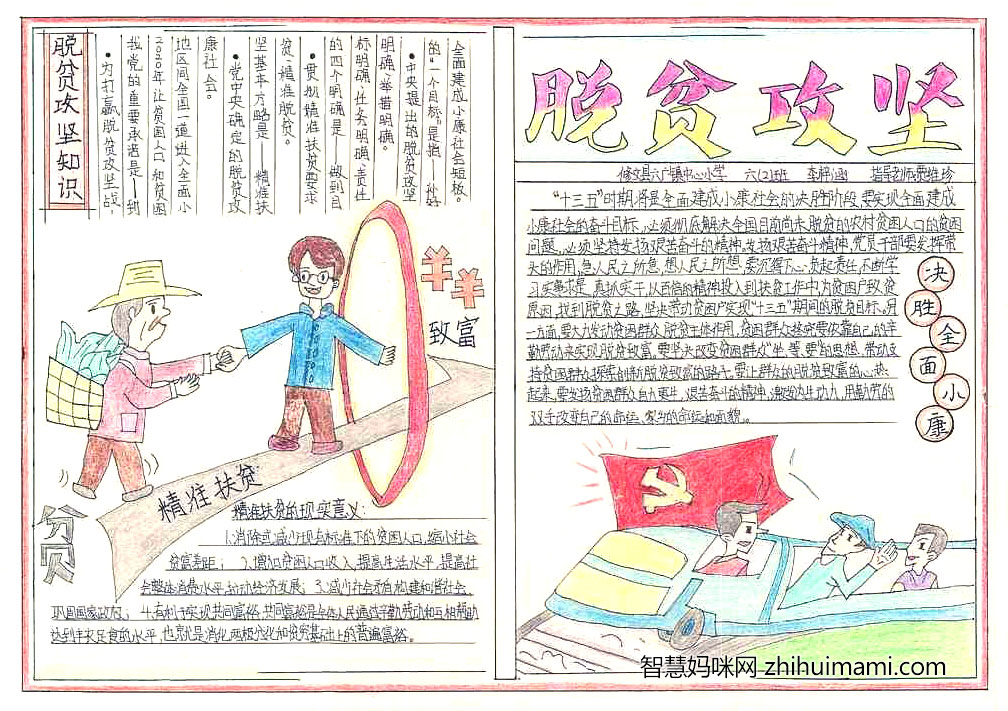 脱贫攻坚知识
•为打赢脱贫攻坚战,
我党的重要承诺是——到
2020年让贫困人口和贫困
地区同全国一道进入全面小
康社会。
•党中央确定的脱贫攻
坚基本方略是——精准扶
贫、精准脱贫。
•贯彻精准扶贫要求
的四个明确是——做到目
标明确、任务明确、责任
明确、举措明确。
•中央提出的脱贫攻坚
的“一个目标”是指——补好
全面建成小康社会短板。
致富
精准扶贫
贫困
精准扶贫的现实意义:
1.消除或减少现有标准下的贫困人口,缩小社会
贫富差距; 2.增加贫困人口收入,提高生活水平,提高社
会整体消费水平,拉动经济发展; 3.减少社会矛盾,构建和谐社会,
巩固国家政权; 4.有利于实现共同富裕,共同富裕是全体人民通过辛勤劳动和互相帮助
达到丰衣足食的水平,也就是消化两极分化和贫穷基础上的普遍富裕。
脱贫攻坚
修文县六广镇中心小学 六(2)班 指导老师
“十三五”时期将是全面建成小康社会的决胜阶段,要实现全面建成
小康社会的奋斗目标,必须彻底解决全国目前尚未脱贫的农村贫困人口的贫困
问题,必须坚持发扬艰苦奋斗的精神。发扬艰苦奋斗精神,党员干部要发挥带
头的作用,急人民之所急,想人民之所想,要沉得下心,负起责任,不断学
习实事求是,真抓实干,以百倍的精神投入到扶贫工作中,为贫困户致贫
原因,找到脱贫之路,坚决带动贫困户实现“十三五”期间的脱贫目标。另
一方面,要大力发动贫困群众脱贫主体作用,贫困群众终究要依靠自己的辛
勤劳动来实现脱贫致富。要坚决改变贫困群众“坐、等、要”的思想,带动支
持贫困群众探索创新脱贫致富的路子。要让群众的脱贫致富的心热
起来,要发扬贫困群众自力更生,艰苦奋斗的精神,激发内生动力,用勤劳的
双手改变自己的命运、家乡的命运和面貌。
决胜全面小康
智慧妈咪网 zhihuimami.com